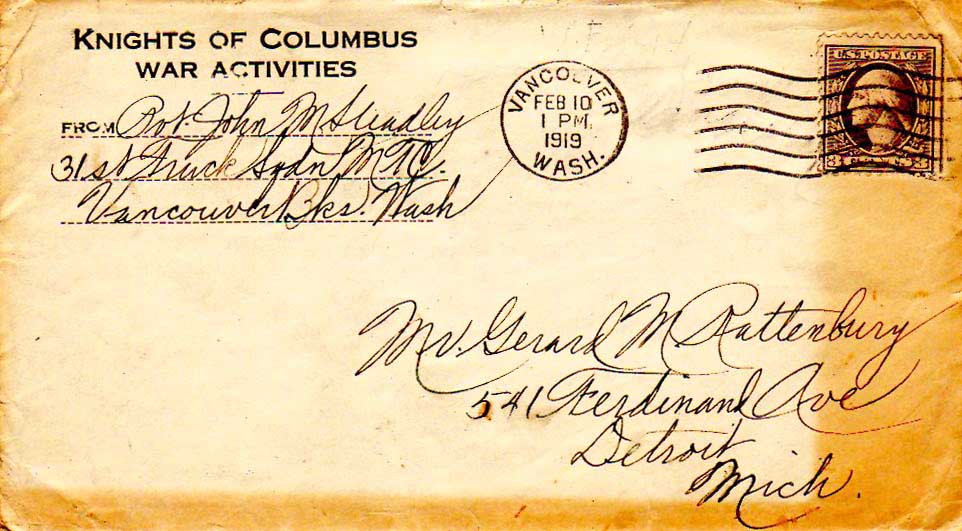 KNIGHTS OF COLUMBUS
WAR ACTIVITIES
FROM Pvt. John M. Steadley
31st Truck Sqdn M.T.C.
Vancouver Bks. Wash
VANCOUVER
FEB 10
1 PM.
1919
WASH.
U.S. POSTAGE
3 3
Mr. Gerard M. Rattenbury
541 Ferdinand Ave
Detroit
Mich.